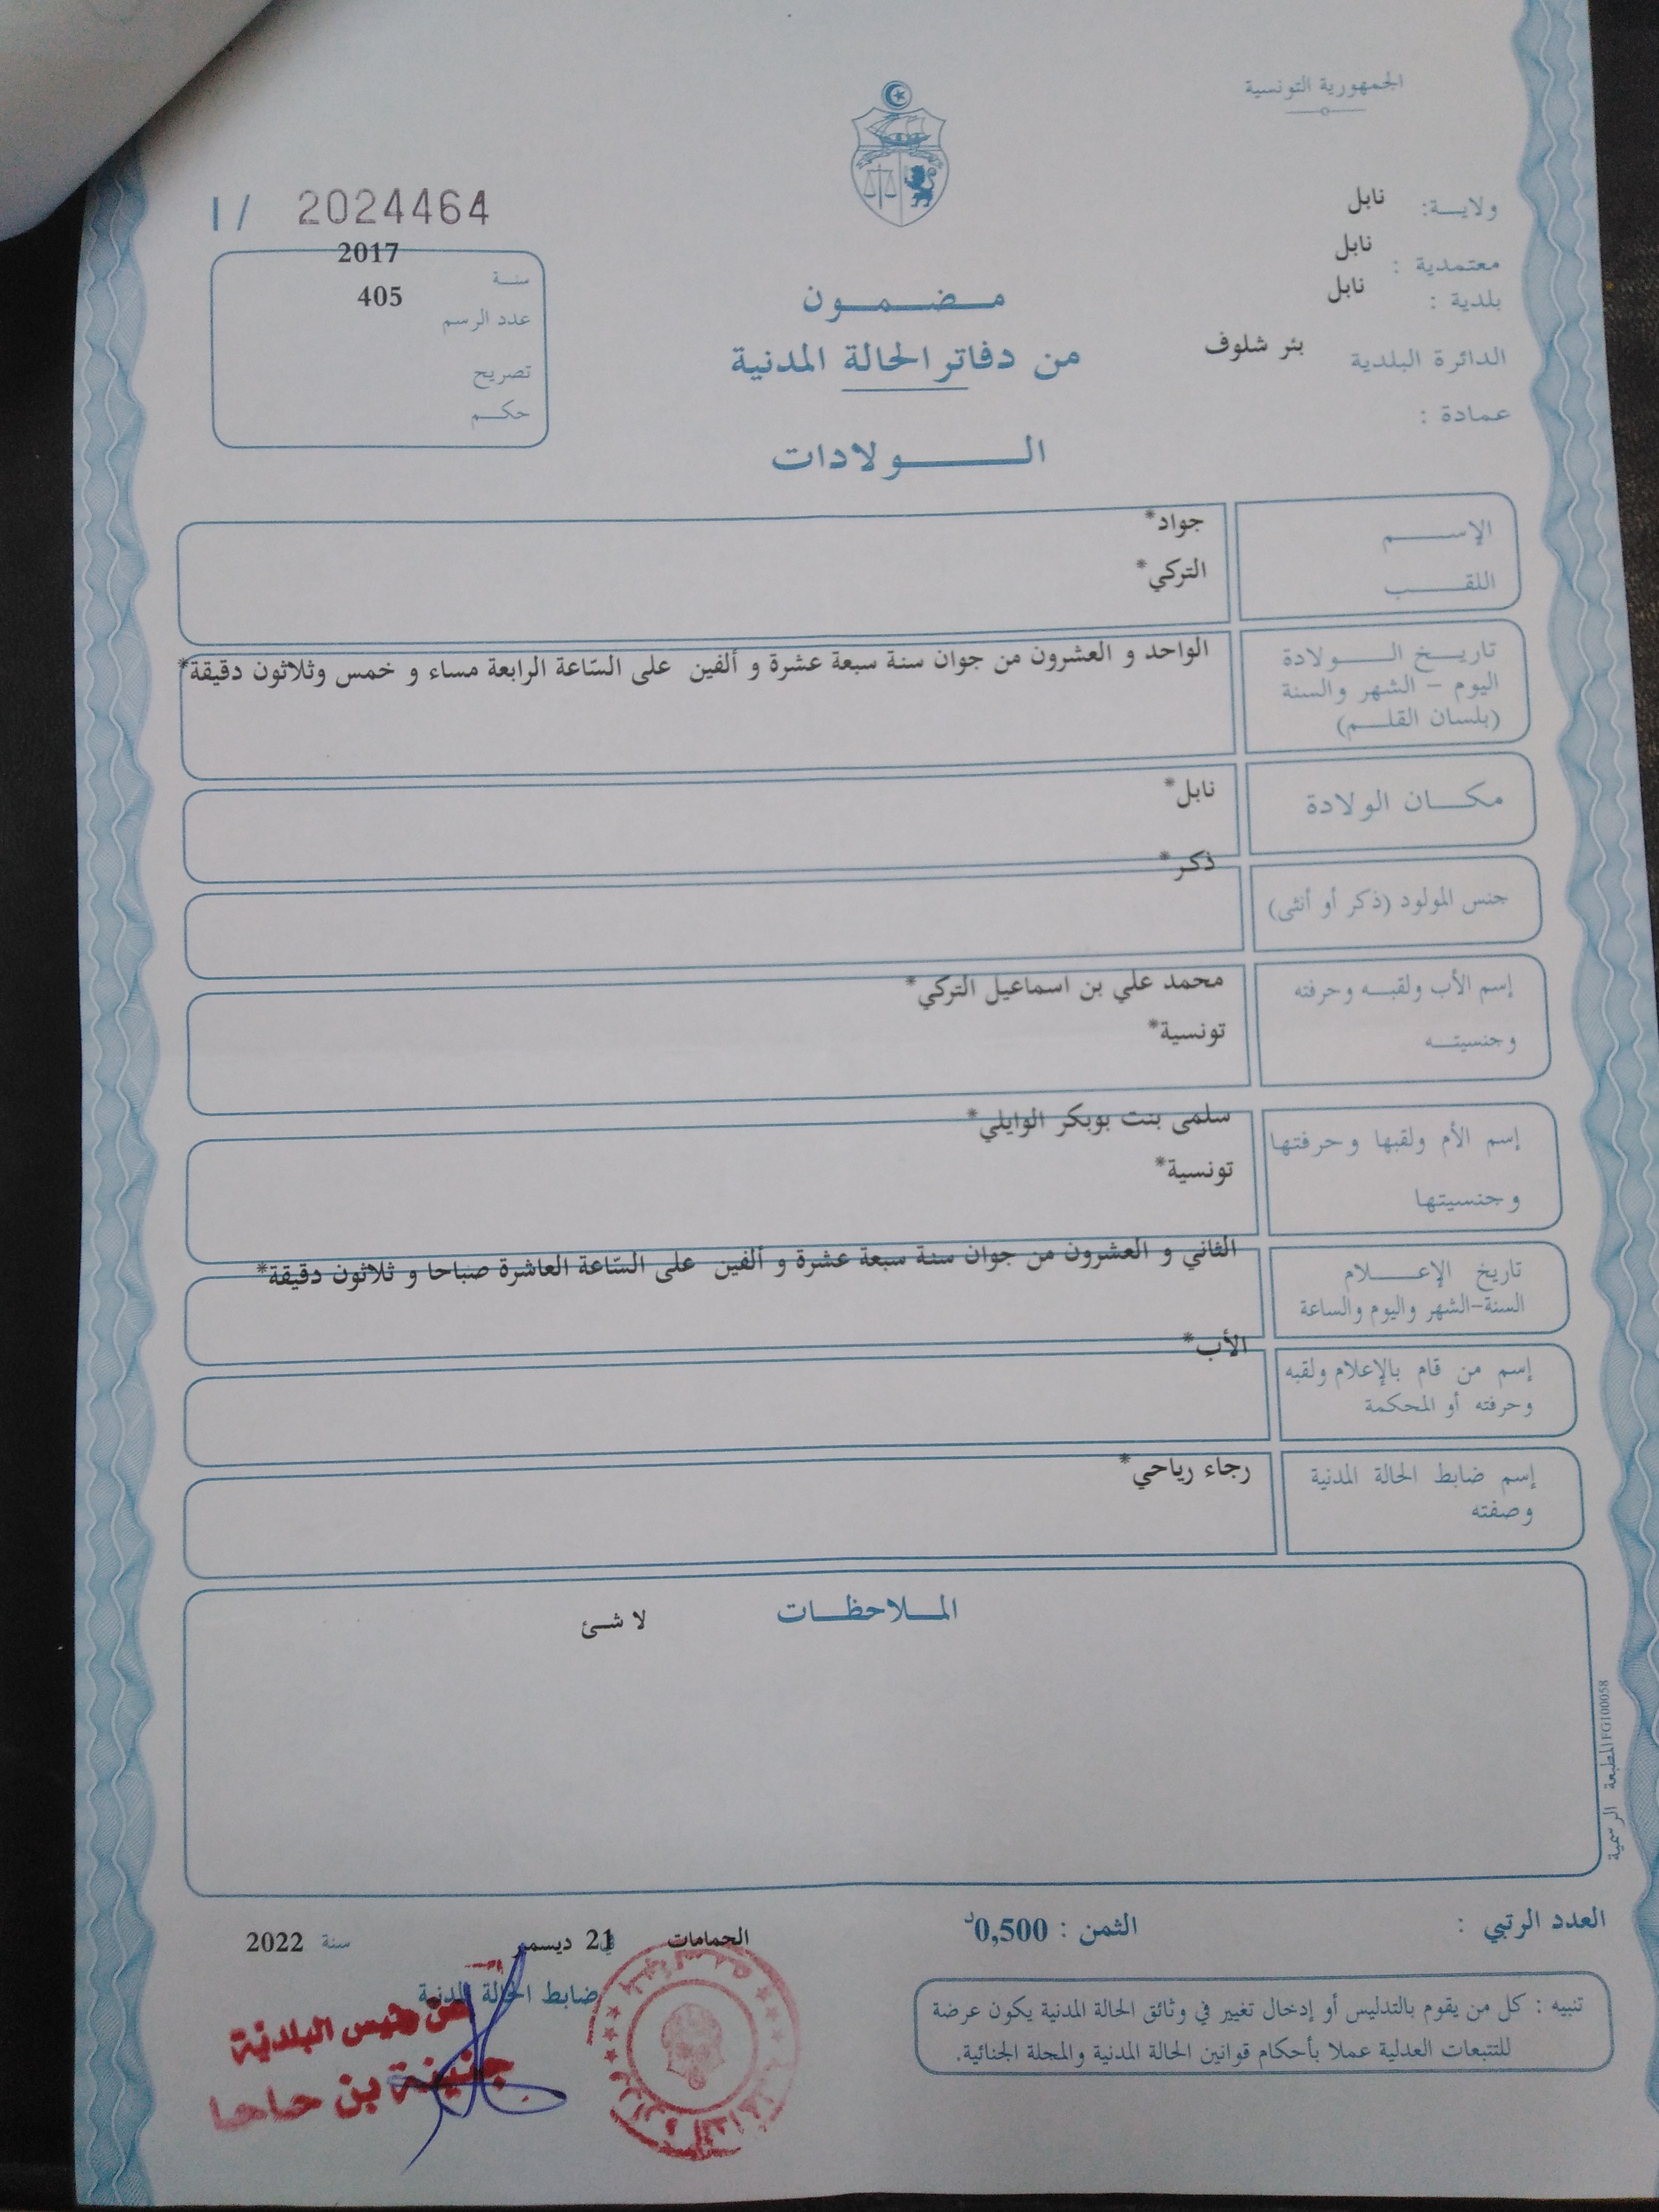 الجمهورية التونسية
ولايـــة: نابل
معتمدية : نابل
بلدية : نابل
الدائرة البلدية بئر شلوف
عمادة :
I / 2024464
سنـــة 2017
عدد الرسم 405
تصريح
حكـــم
مـــضـــمـــون
من دفاتر الحالة المدنية
الـــــــولادات
الإســـــم جواد*
اللقـــــب التركي*
تاريــخ الـــــولادة
اليوم – الشهر والسنة
(بلسان القلـــم)
الواحد و العشرون من جوان سنة سبعة عشرة و ألفين على السّاعة الرابعة مساء و خمس وثلاثون دقيقة*
مكـــان الولادة نابل*
جنس المولود (ذكر أو أنثى) ذكر*
إسم الأب ولقبــه وحرفته محمد علي بن اسماعيل التركي*
وجنسيتــه تونسية*
إسم الأم ولقبها وحرفتها سلمى بنت بوبكر الوايلي*
وجنسيتها تونسية*
تاريخ الإعـــــلام
السنة-الشهر واليوم والساعة
الثاني و العشرون من جوان سنة سبعة عشرة و ألفين على السّاعة العاشرة صباحا و ثلاثون دقيقة*
إسم من قام بالإعلام ولقبه
وحرفته أو المحكمة
الأب*
إسم ضابط الحالة المدنية
وصفته
رجاء رياحي*
المـــلاحظـــات
لا شئ
المطبعة الرسمية FG100058
العدد الرتبي :
الثمن : 0,500د
الحمامات في 21 ديسمبر سنة 2022
ضابط الحالة المدنية
عن رئيس البلدية
جنينة بن حاحا
تنبيه : كل من يقوم بالتدليس أو إدخال تغيير في وثائق الحالة المدنية يكون عرضة
للتتبعات العدلية عملا بأحكام قوانين الحالة المدنية والمجلة الجنائية.